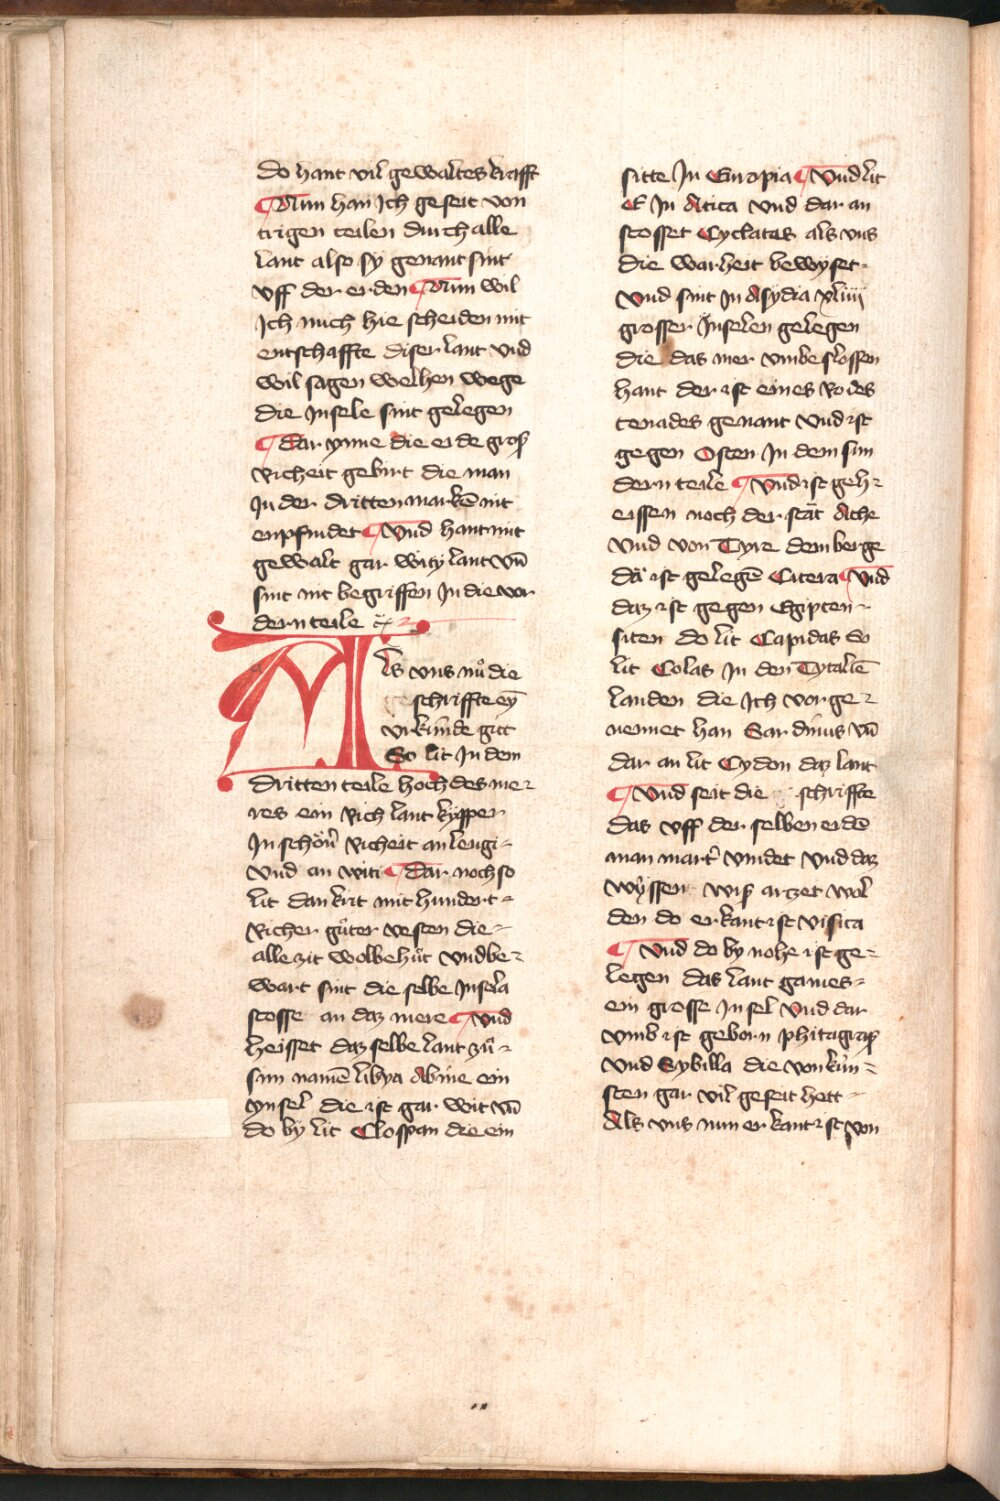 do hant vil gewaltes krafft
¶ Nun han Ich geseit von
trigen teilen durch alle
lant also sy genant sint
vff der erden ¶ Nun wil
Ich mich hie scheiden mit
entschaffte diser lant vnd
wil sagen welhen wege
die Insele sint gelegen
¶ Dar ynne die erde groß
Richeit gebirt die man
In der dritten marckē nit
enpfindet ¶ Vnd hant mit
gewalt gar wity lant vn̄
sint nit begriffen In die vor
dern teile
Als vns nuͦ die
schriffte ey̅
vrkunde gitt
So lit In dem
dritten teile hoch des me-
res ein Rich lant kypper
In schön̄ Richeit an lengi-
vnd an witi ¶ Dar noch so
lit dan krit mit hundert-
Richer guͦter vesten die-
alle zit wol behuͤt vnd be-
wart sint die selbe Insela
stosse an daz mere ¶ Vnd
heisset daz selbe lant zuͦ-
sim namē libya Abine ein
ynsel die ist gar wit vn̄
do by lit Clospan die ein
sitte In Europia ¶ Vnd lit
Es In Atica vnd dar an
stosset Cyclatas als vns
die warheit bewyset
Vnd sint In Asydia xliiij
grosser Inselen gelegen
die das mer vmbeslossen
hant der ist eines Rodes
tenades genant vnd ist
gegen Osten In dem sun
dern teile ¶ Vnd ist geh-
eissen noch der stat Ache
Vnd von Tyre dem berge
da ist gelegē Citera ¶ Vnd
daz ist gegen Egipten-
siten do lit Capidas So
lit Colas In den Tytalē
landen die Ich vor ge-
nennet han Sardinus vn̄
dar an lit Cydon daz lant
¶ Vnd seit die schriffte
das vff der selben erdē
man mart̄ vindet vnd daz
wyssen wiß arzet wol
den do erkant ist visica
¶ Vnd do by nohe ist ge-
legen das lant games-
ein grosse Insel vnd dar
vmb ist geborn phitagraß
vnd Sybilla die von kün-
sten gar vil geseit hett-
Als vns nun erkant ist von